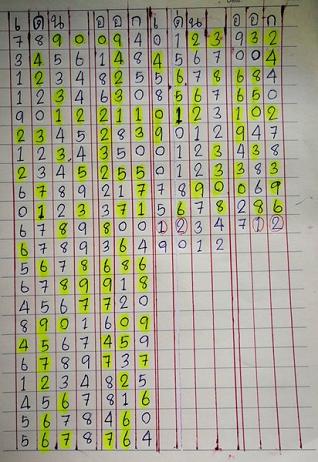 เ ด่ น อ อ ก เ ด่ น อ อ ก
7 8 9 0 0 9 4 0 1 2 3 9 3 2
3 4 5 6 1 4 8 4 5 6 7 0 0 4
1 2 3 4 8 2 5 5 6 7 8 6 8 4
1 2 3 4 6 3 0 8 5 6 7 6 5 0
9 0 1 2 2 1 1 0 1 2 3 1 0 2
2 3 4 5 2 8 3 9 0 1 2 9 4 7
1 2 3 4 3 5 0 0 1 2 3 4 3 8
2 3 4 5 2 5 5 0 1 2 3 3 8 3
6 7 8 9 2 1 7 7 8 9 0 0 6 9
0 1 2 3 3 7 1 5 6 7 8 2 8 6
6 7 8 9 8 0 0 1 2 3 4 7 1 2
6 7 8 9 3 6 4 9 0 1 2
5 6 7 8 6 8 6
6 7 8 9 9 1 8
4 5 6 7 7 2 0
8 9 0 1 6 0 9
4 5 6 7 4 5 9
6 7 8 9 7 3 7
1 2 3 4 8 2 5
4 5 6 7 8 1 6
5 6 7 8 4 6 0
5 6 7 8 7 6 4